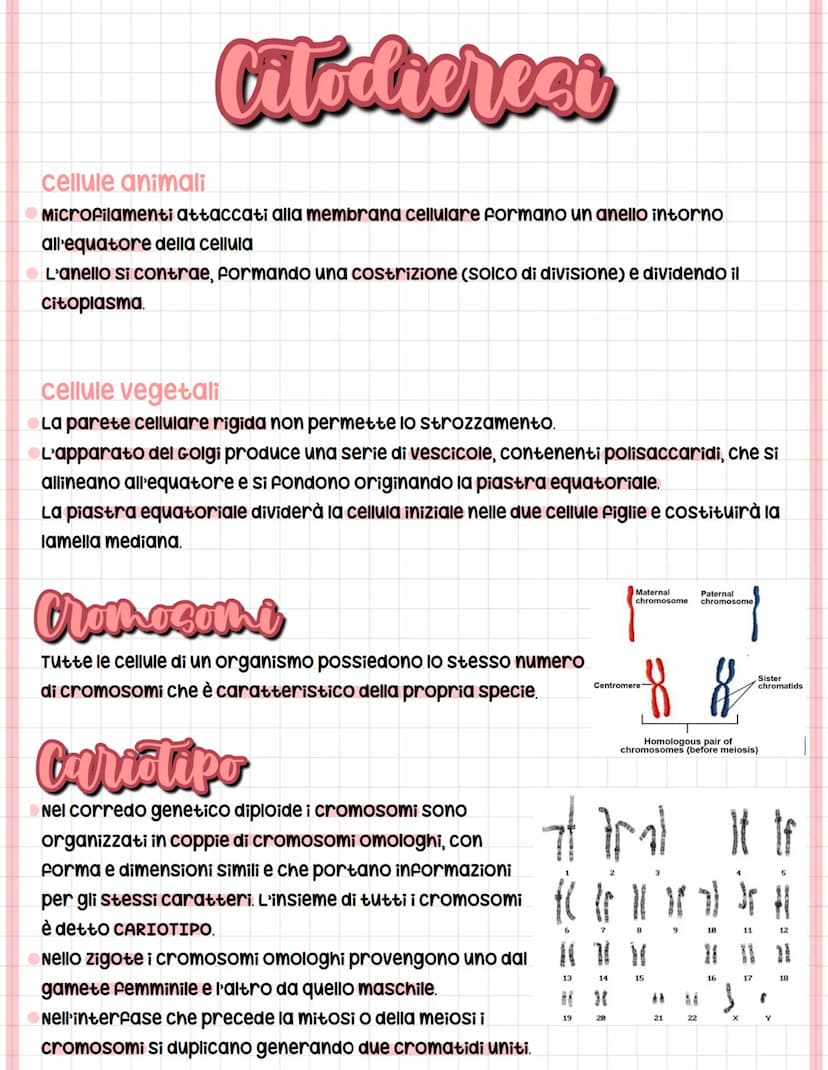 Citodieresi
cellule animali
Microfilamenti attaccati alla membrana cellulare formano un anello intorno
all'equatore della cellula
L'anello si contrae, formando una costrizione (solco di divisione) e dividendo il
citoplasma.
cellule vegetali
La parete cellulare rigida non permette lo strozzamento.
L'apparato del Golgi produce una serie di vescicole, contenenti polisaccaridi, che si
allineano all'equatore e si fondono originando la piastra equatoriale.
La piastra equatoriale dividerà la cellula iniziale nelle due cellule figlie e costituirà la
lamella mediana.
Cromosomi
Tutte le cellule di un organismo possiedono lo stesso numero
di cromosomi che è caratteristico della propria specie.
Maternal
chromosome
Paternal
chromosome
Centromere
Sister
chromatids
Homologous pair of
chromosomes (before meiosis)
Cariotipo
Nel corredo genetico diploide i cromosomi sono
organizzati in coppie di cromosomi omologhi, con
forma e dimensioni simili e che portano informazioni
per gli stessi caratteri. L'insieme di tutti i cromosomi
è detto CARIOTIPO.
Nello zigote i cromosomi omologhi provengono uno dal
gamete femminile e l'altro da quello maschile.
Nell'interfase che precede la mitosi o della meiosi i
cromosomi si duplicano generando due cromatidi uniti.
1 2 3 4 5
6 7 8 9 10 11 12
13 14 15 16 17 18
19 20 21 22 X Y